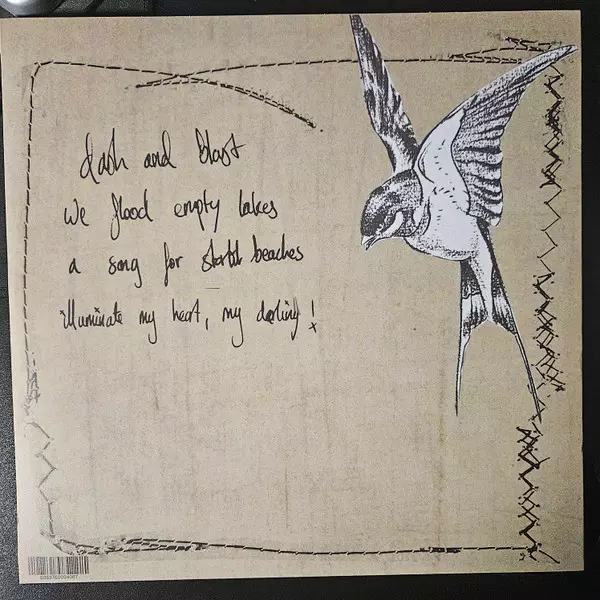 dash and blast
we flood empty lakes
a song for starlit beaches
illuminate my heart, my darling!